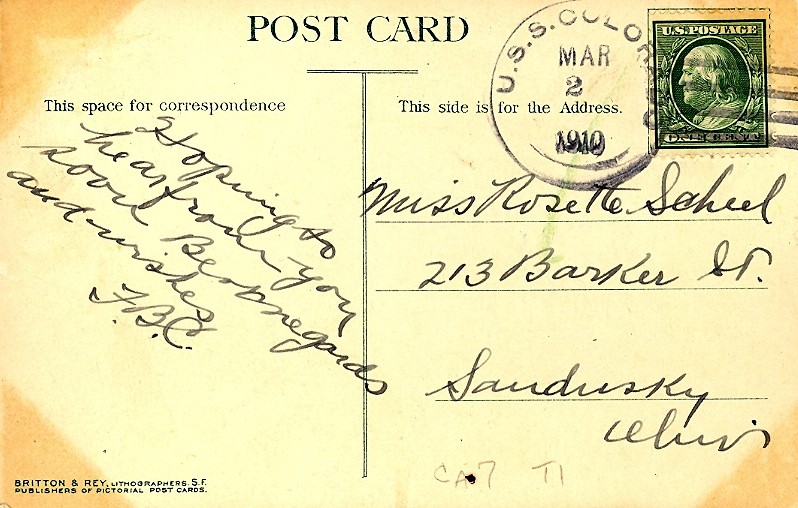 POST CARD
This space for correspondence
This side is for the Address.
U.S.S. COLORADO
MAR
2
1910
U.S. POSTAGE
ONE CENT
Hopping to
hear from you
soon Best regards
and wishes
F.B.C.
Miss Rosette Scheel
213 Barker St.
Sandusky
Ohio
CA7 T1
BRITTON & REY, LITHOGRAPHERS. S.F.
PUBLISHERS OF PICTORIAL POST CARDS.